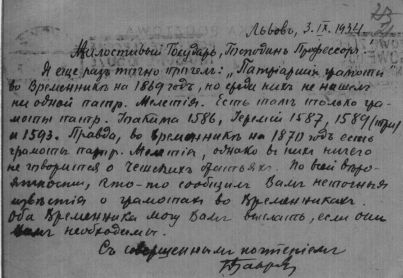 Львовъ, 3.IX.1934
Милостивый Государь, Господинъ Профессоръ
Я еще разъ точно прочелъ: „Патріаршія грамоты
во Временникѣ на 1869 годъ, но среди нихъ не нашелъ
ни одной патр. Мелетія. Есть тамъ только гра-
моты патр. Іоакима 1586, Іереміи 1587, 1589 (три)
и 1593. Правда, во Временникѣ на 1870 годъ есть
грамоты патр. Мелетія, однако въ нихъ ничего
не говорится о Чешскихъ братьяхъ. По всей вѣро-
ятности, кто-то сообщилъ Вамъ неточныя
извѣстія о грамотахъ во Временникахъ.
Оба Временника могу Вамъ выслать, если они
Вамъ необходимы.
Съ совершеннымъ почтеніемъ